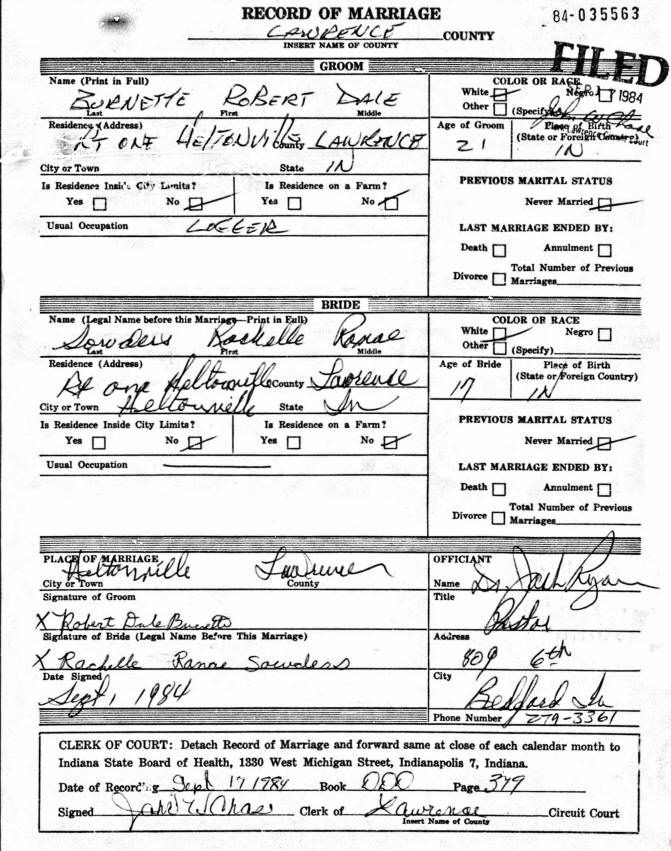 RECORD OF MARRIAGE
84-035563
LAWRENCE COUNTY
INSERT NAME OF COUNTY
FILED
17 1984
GROOM
Name (Print in Full)
BURNETTE ROBERT DALE
Last First Middle
COLOR OR RACE
White Negro
Other (Specify)
Residence (Address)
RT ONE HELTONVILLE County LAWRENCE
City or Town State IN
Age of Groom
21
Place of Birth
(State or Foreign Country)
IN
Is Residence Inside City Limits?
Yes No
Is Residence on a Farm?
Yes No
Usual Occupation LOGGER
PREVIOUS MARITAL STATUS
Never Married
LAST MARRIAGE ENDED BY:
Death Annulment
Divorce Total Number of Previous
Marriages
BRIDE
Name (Legal Name before this Marriage—Print in Full)
Sowders Rachelle Ranae
Last First Middle
COLOR OR RACE
White Negro
Other (Specify)
Residence (Address)
Rt one Heltonville County Lawrence
City or Town Heltonville State In
Age of Bride
17
Place of Birth
(State or Foreign Country)
IN
Is Residence Inside City Limits?
Yes No
Is Residence on a Farm?
Yes No
Usual Occupation
PREVIOUS MARITAL STATUS
Never Married
LAST MARRIAGE ENDED BY:
Death Annulment
Divorce Total Number of Previous
Marriages
PLACE OF MARRIAGE
Heltonville Lawrence
City or Town County
Signature of Groom
X Robert Dale Burnette
Signature of Bride (Legal Name Before This Marriage)
X Rachelle Ranae Sowders
Date Signed
Sept 1 1984
OFFICIANT
Name Dr. Jack Ryan
Title
Pastor
Address
809 6th
City
Bedford In
Phone Number 279-3361
CLERK OF COURT: Detach Record of Marriage and forward same at close of each calendar month to
Indiana State Board of Health, 1330 West Michigan Street, Indianapolis 7, Indiana.
Date of Recording Sept 17 1984 Book Page 379
Signed Clerk of Lawrence Circuit Court
Insert Name of County